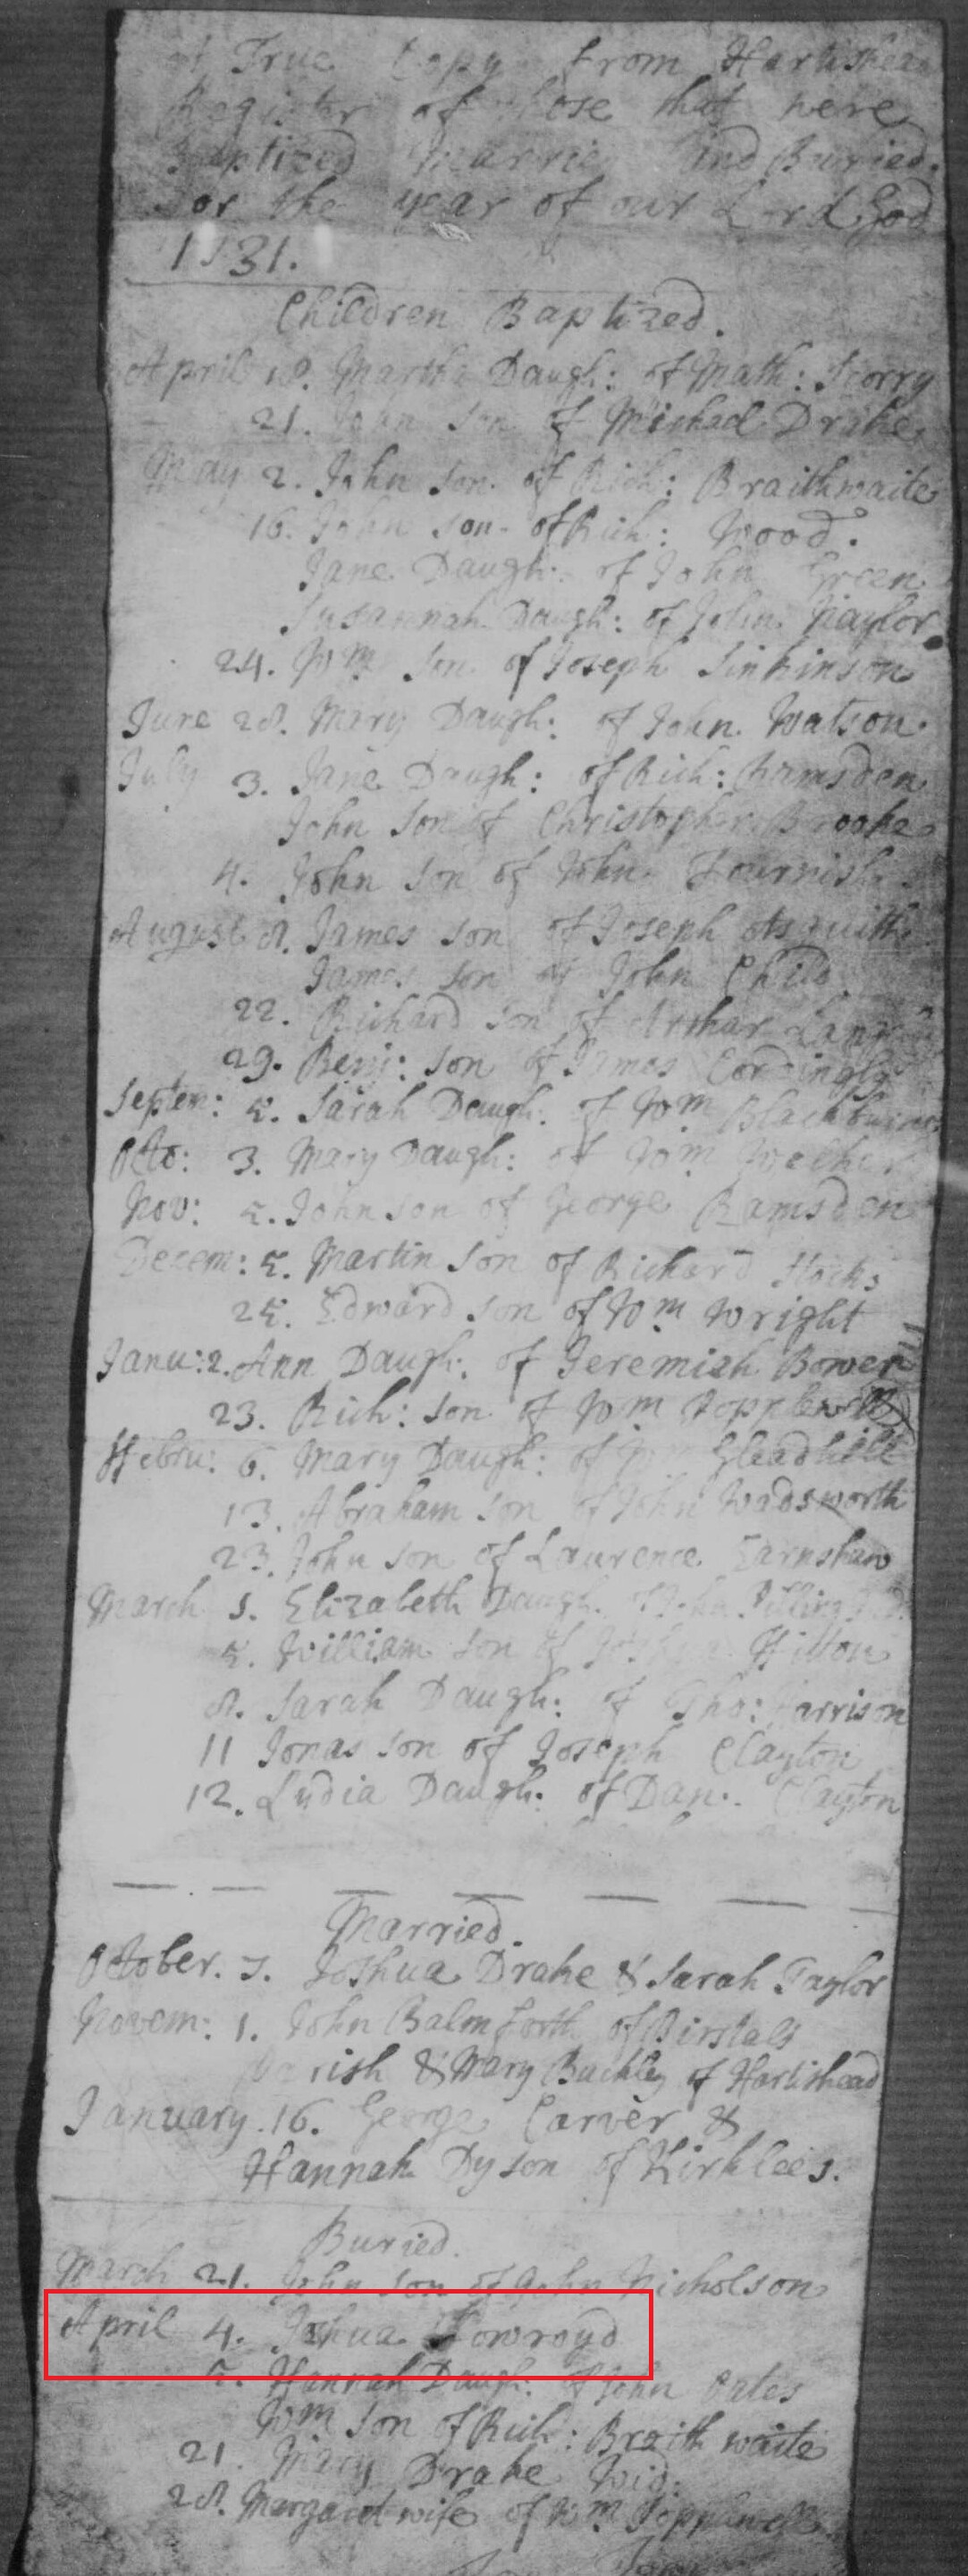 A True Copy from Hartishead
Register of those that were
Baptized Married and Buried
for the year of our Lord God
1731.
Children Baptized.
April 18. Martha Daugh: of Math: Storry
21. John Son of Michael Drake
May 2. John Son of Rich: Braithwaite
16. John Son of Rich: Wood.
Jane Daugh: of John Green
Susannah Daugh: of John Naylor
24. Wm Son of Joseph Sinkinson
June 28. Mary Daugh: of John Watson.
July 3. Jane Daugh: of Rich: Ramsden
John Son of Christopher Brooke
4. John Son of John Fournish
August 8. James Son of Joseph Asquith
James Son of John Child
22. Richard Son of Arthur
29. Benj: Son of James Cordingly
Septem: 5. Sarah Daugh: of Wm Blackburne
Octo: 3. Mary Daugh: of Wm Walker
Nov: 5. John Son of George Ramsden
Decem: 5. Martin Son of Richard Hocks
25. Edward Son of Wm Wright
Janu: 2. Ann Daugh: of Jeremiah Bower
23. Rich: Son of Wm Popplewell
Febru: 6. Mary Daugh: of Wm Gleadhill
13. Abraham Son of John Wadsworth
23. John Son of Laurence Earnshaw
March 1. Elizabeth Daugh: of John
5. William Son of Hilton
8. Sarah Daugh: of Tho: Harrison
11 Jonas Son of Joseph Clayton
12. Lydia Daugh: of Dan: Clayton
Married.
October. 7. Joshua Drake & Sarah Taylor
Novem: 1. John Balmforth of Birstall
Parish & Mary Buckley of Hartishead
January. 16. George Carver &
Hannah Dyson of Kirklees.
Buried.
March 21. John Son of John Nicholson
April 4. Joshua Howroyd
5. Hannah Daugh: of John Oates
Wm Son of Rich: Braithwaite
21. Mary Drake Wid.
28. Margaret wife of Wm Popplewell